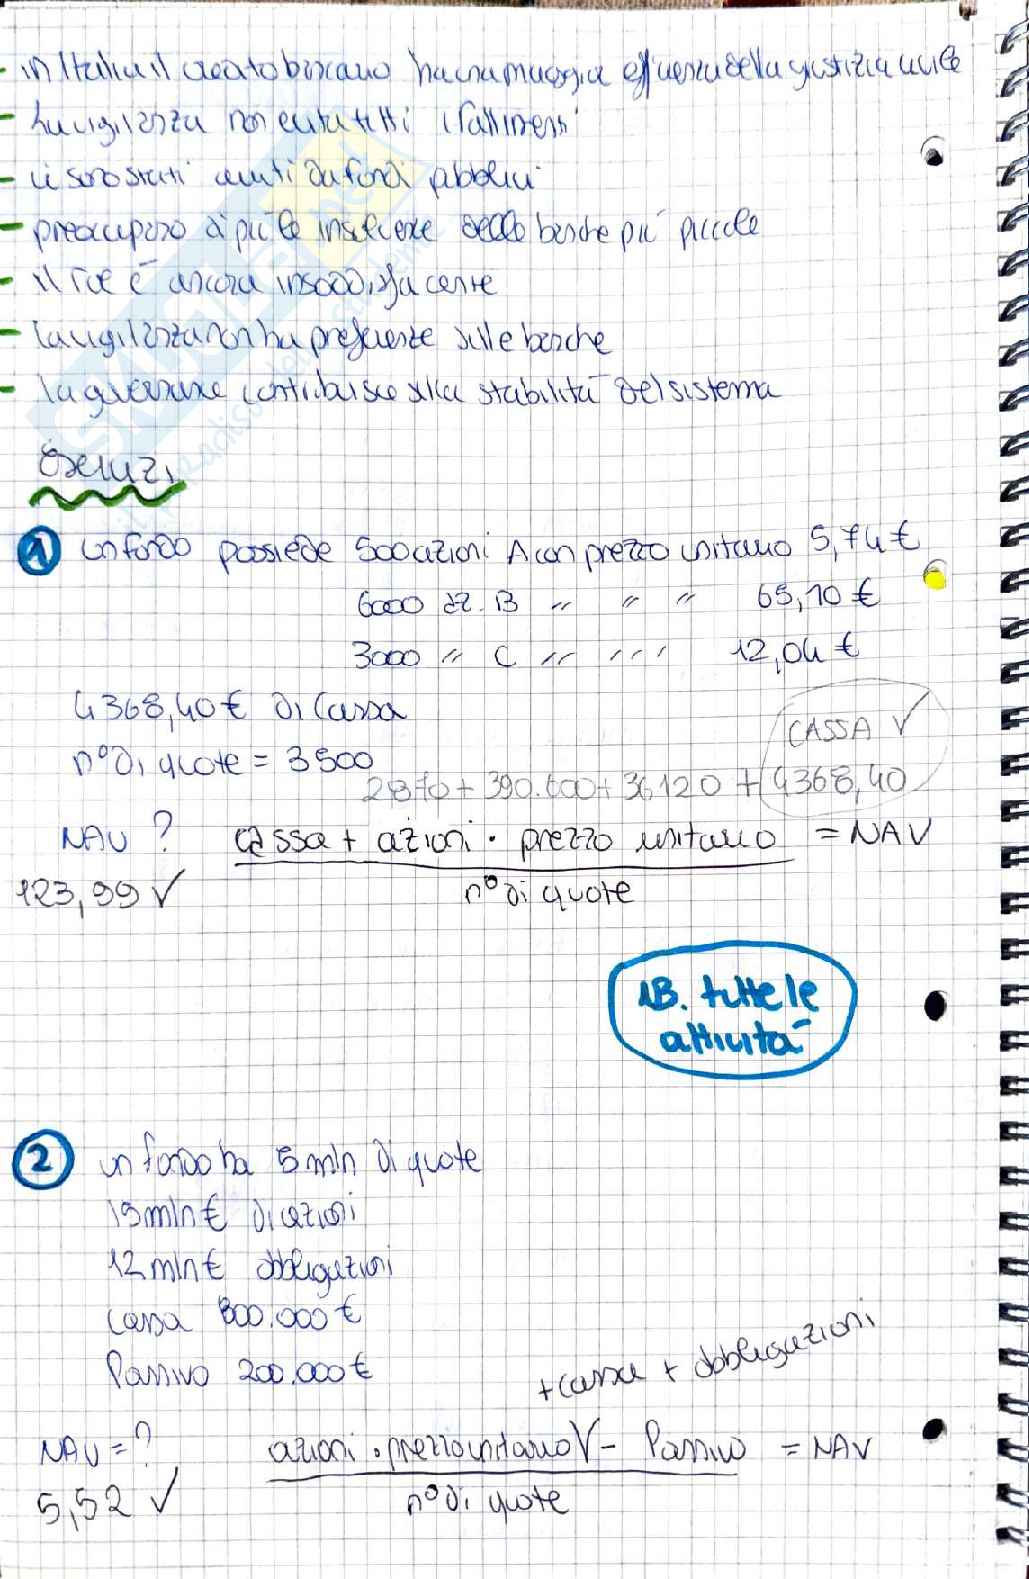 - in Italia il reato bancario ha una maggior efficienza della giustizia civile
- la vigilanza non evita tutti i fallimenti
- ci sono stati aiuti da fondi pubblici
- preoccupano di più le insolvenze delle banche più piccole
- il roe è ancora insoddisfacente
- la vigilanza non ha preferenze sulle banche
- la governance contribuisce alla stabilità del sistema
Esercizi
1 un fondo possiede 500 azioni A con prezzo unitario 5,74 €
6000 az. B " " " 65,10 €
3000 " C " " " 12,04 €
4368,40 € di cassa
CASSA ✓
n° di quote = 3500
2870 + 390.600 + 36.120 + 4368,40
NAV ? cassa + azioni · prezzo unitario = NAV
123,99 ✓ n° di quote
NB. tutte le
attività
2 un fondo ha 5 mln di quote
15 mln € di azioni
12 mln € obbligazioni
cassa 800.000 €
Passivo 200.000 €
+ cassa + obbligazioni
NAV = ? azioni · prezzo unitario V - Passivo = NAV
5,52 ✓ n° di quote
SKUOLA.NET